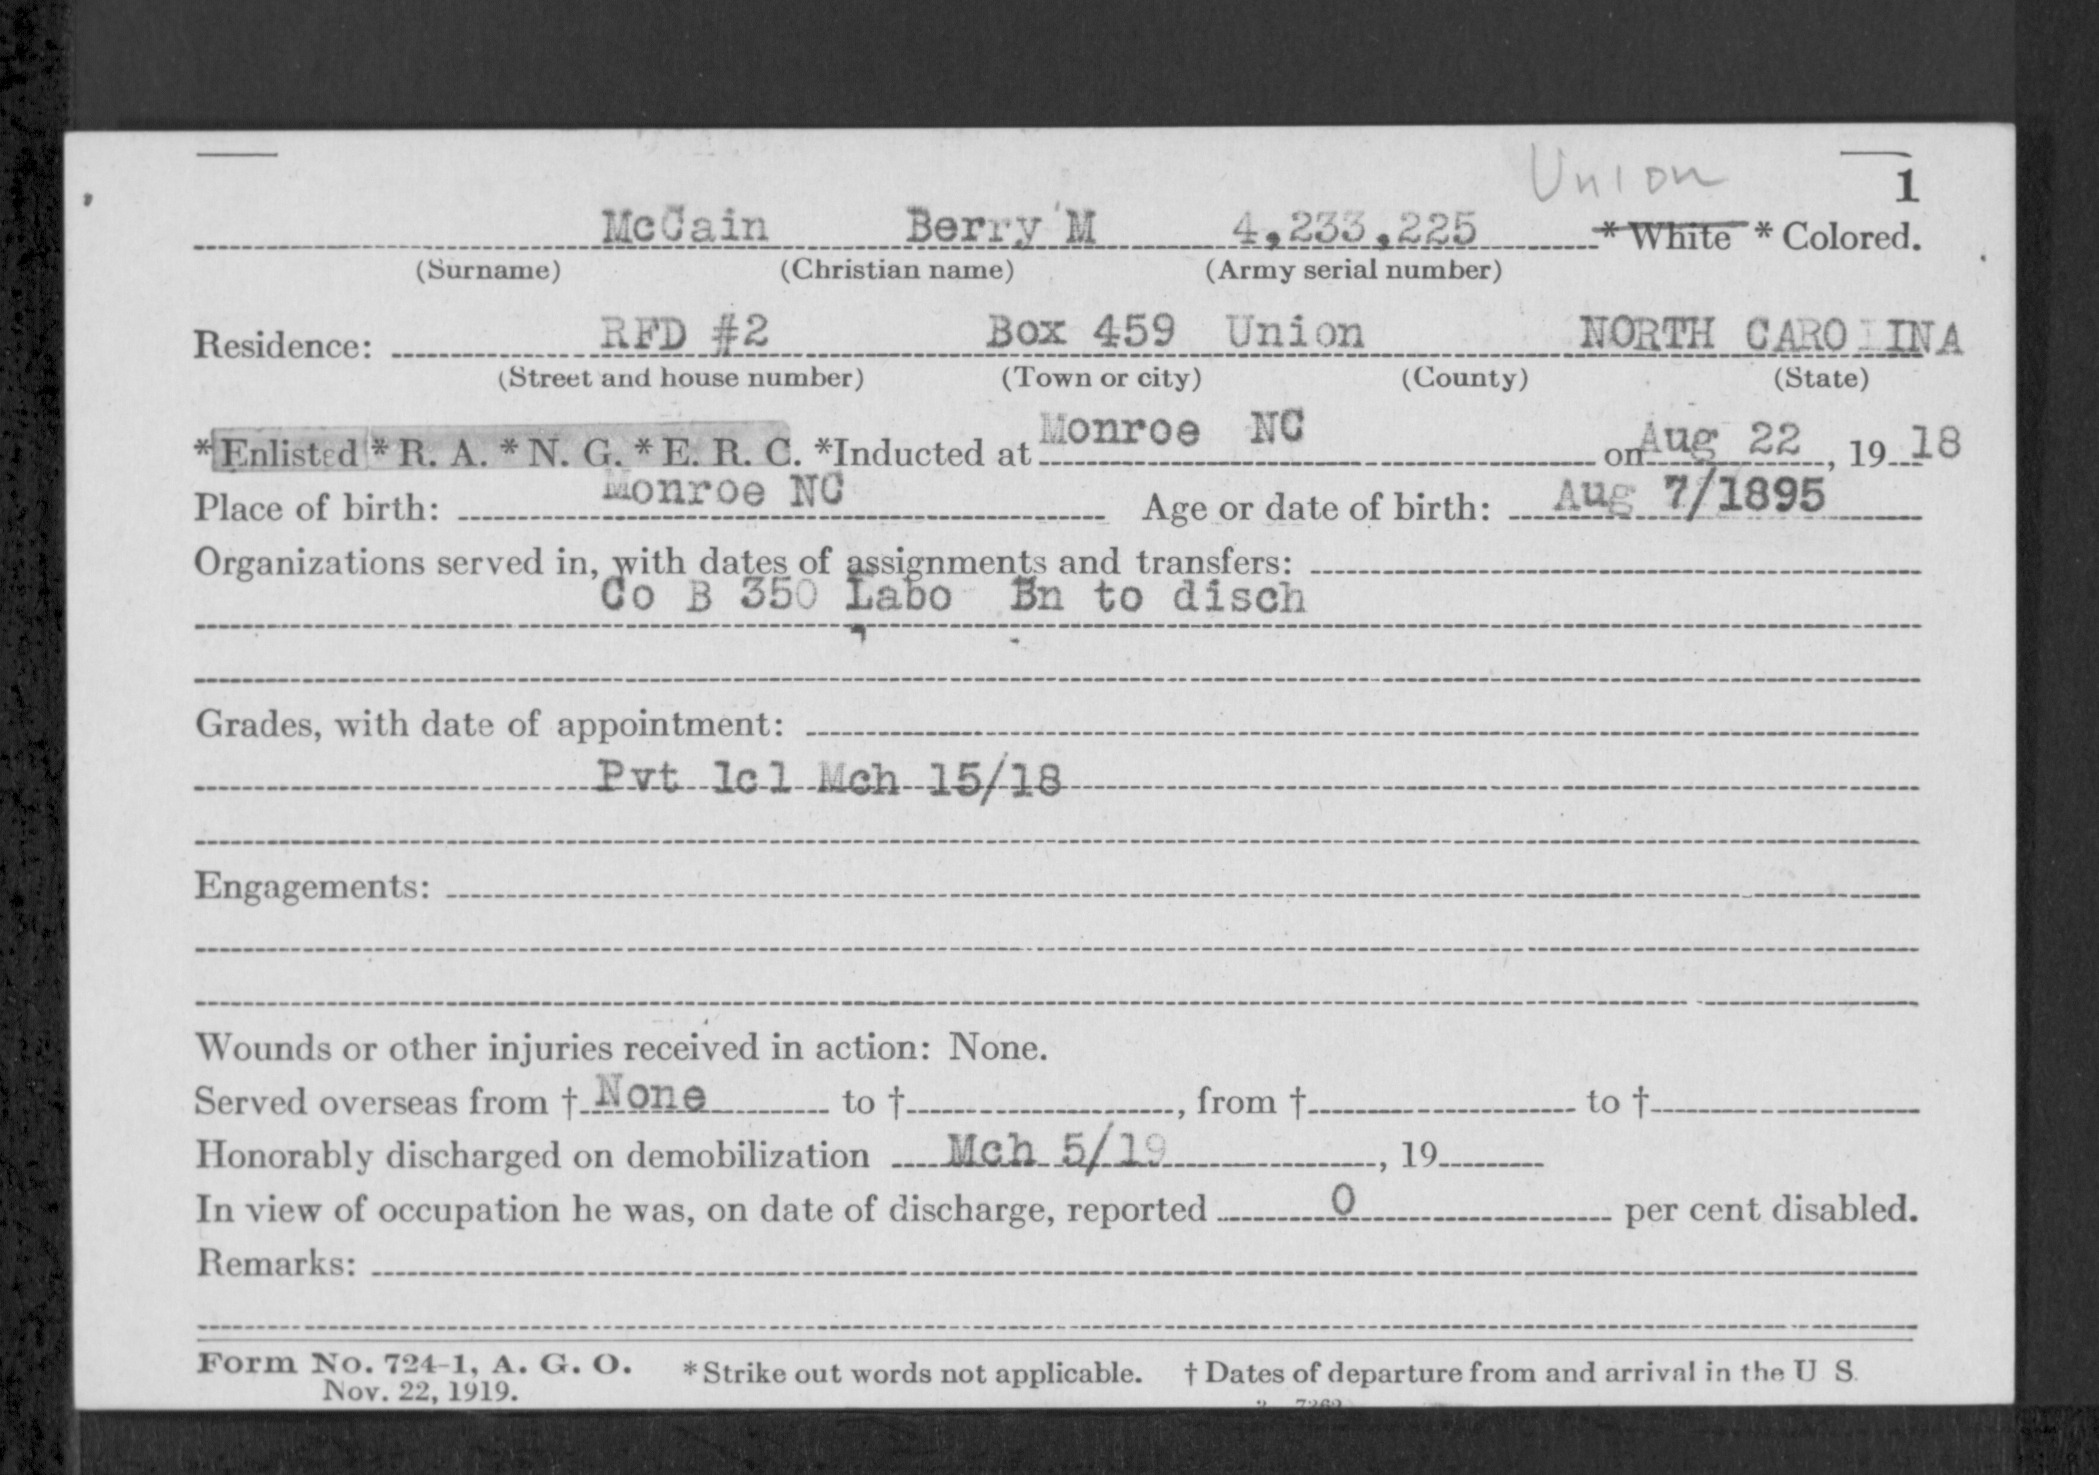 Union
1
McCain Berry M 4,233,225 * White * Colored.
(Surname) (Christian name) (Army serial number)
Residence: RFD #2 Box 459 Union NORTH CAROLINA
(Street and house number) (Town or city) (County) (State)
* Enlisted * R. A. * N. G. * E. R. C. *Inducted at Monroe NC on Aug 22, 19 18
Place of birth: Monroe NC Age or date of birth: Aug 7/1895
Organizations served in, with dates of assignments and transfers:
Co B 350 Labo Bn to disch
Grades, with date of appointment:
Pvt 1cl Mch 15/18
Engagements:
Wounds or other injuries received in action: None.
Served overseas from † None to †, from † to †
Honorably discharged on demobilization Mch 5/19, 19
In view of occupation he was, on date of discharge, reported 0 per cent disabled.
Remarks:
Form No. 724-1, A. G. O. * Strike out words not applicable. † Dates of departure from and arrival in the U S.
Nov. 22, 1919.